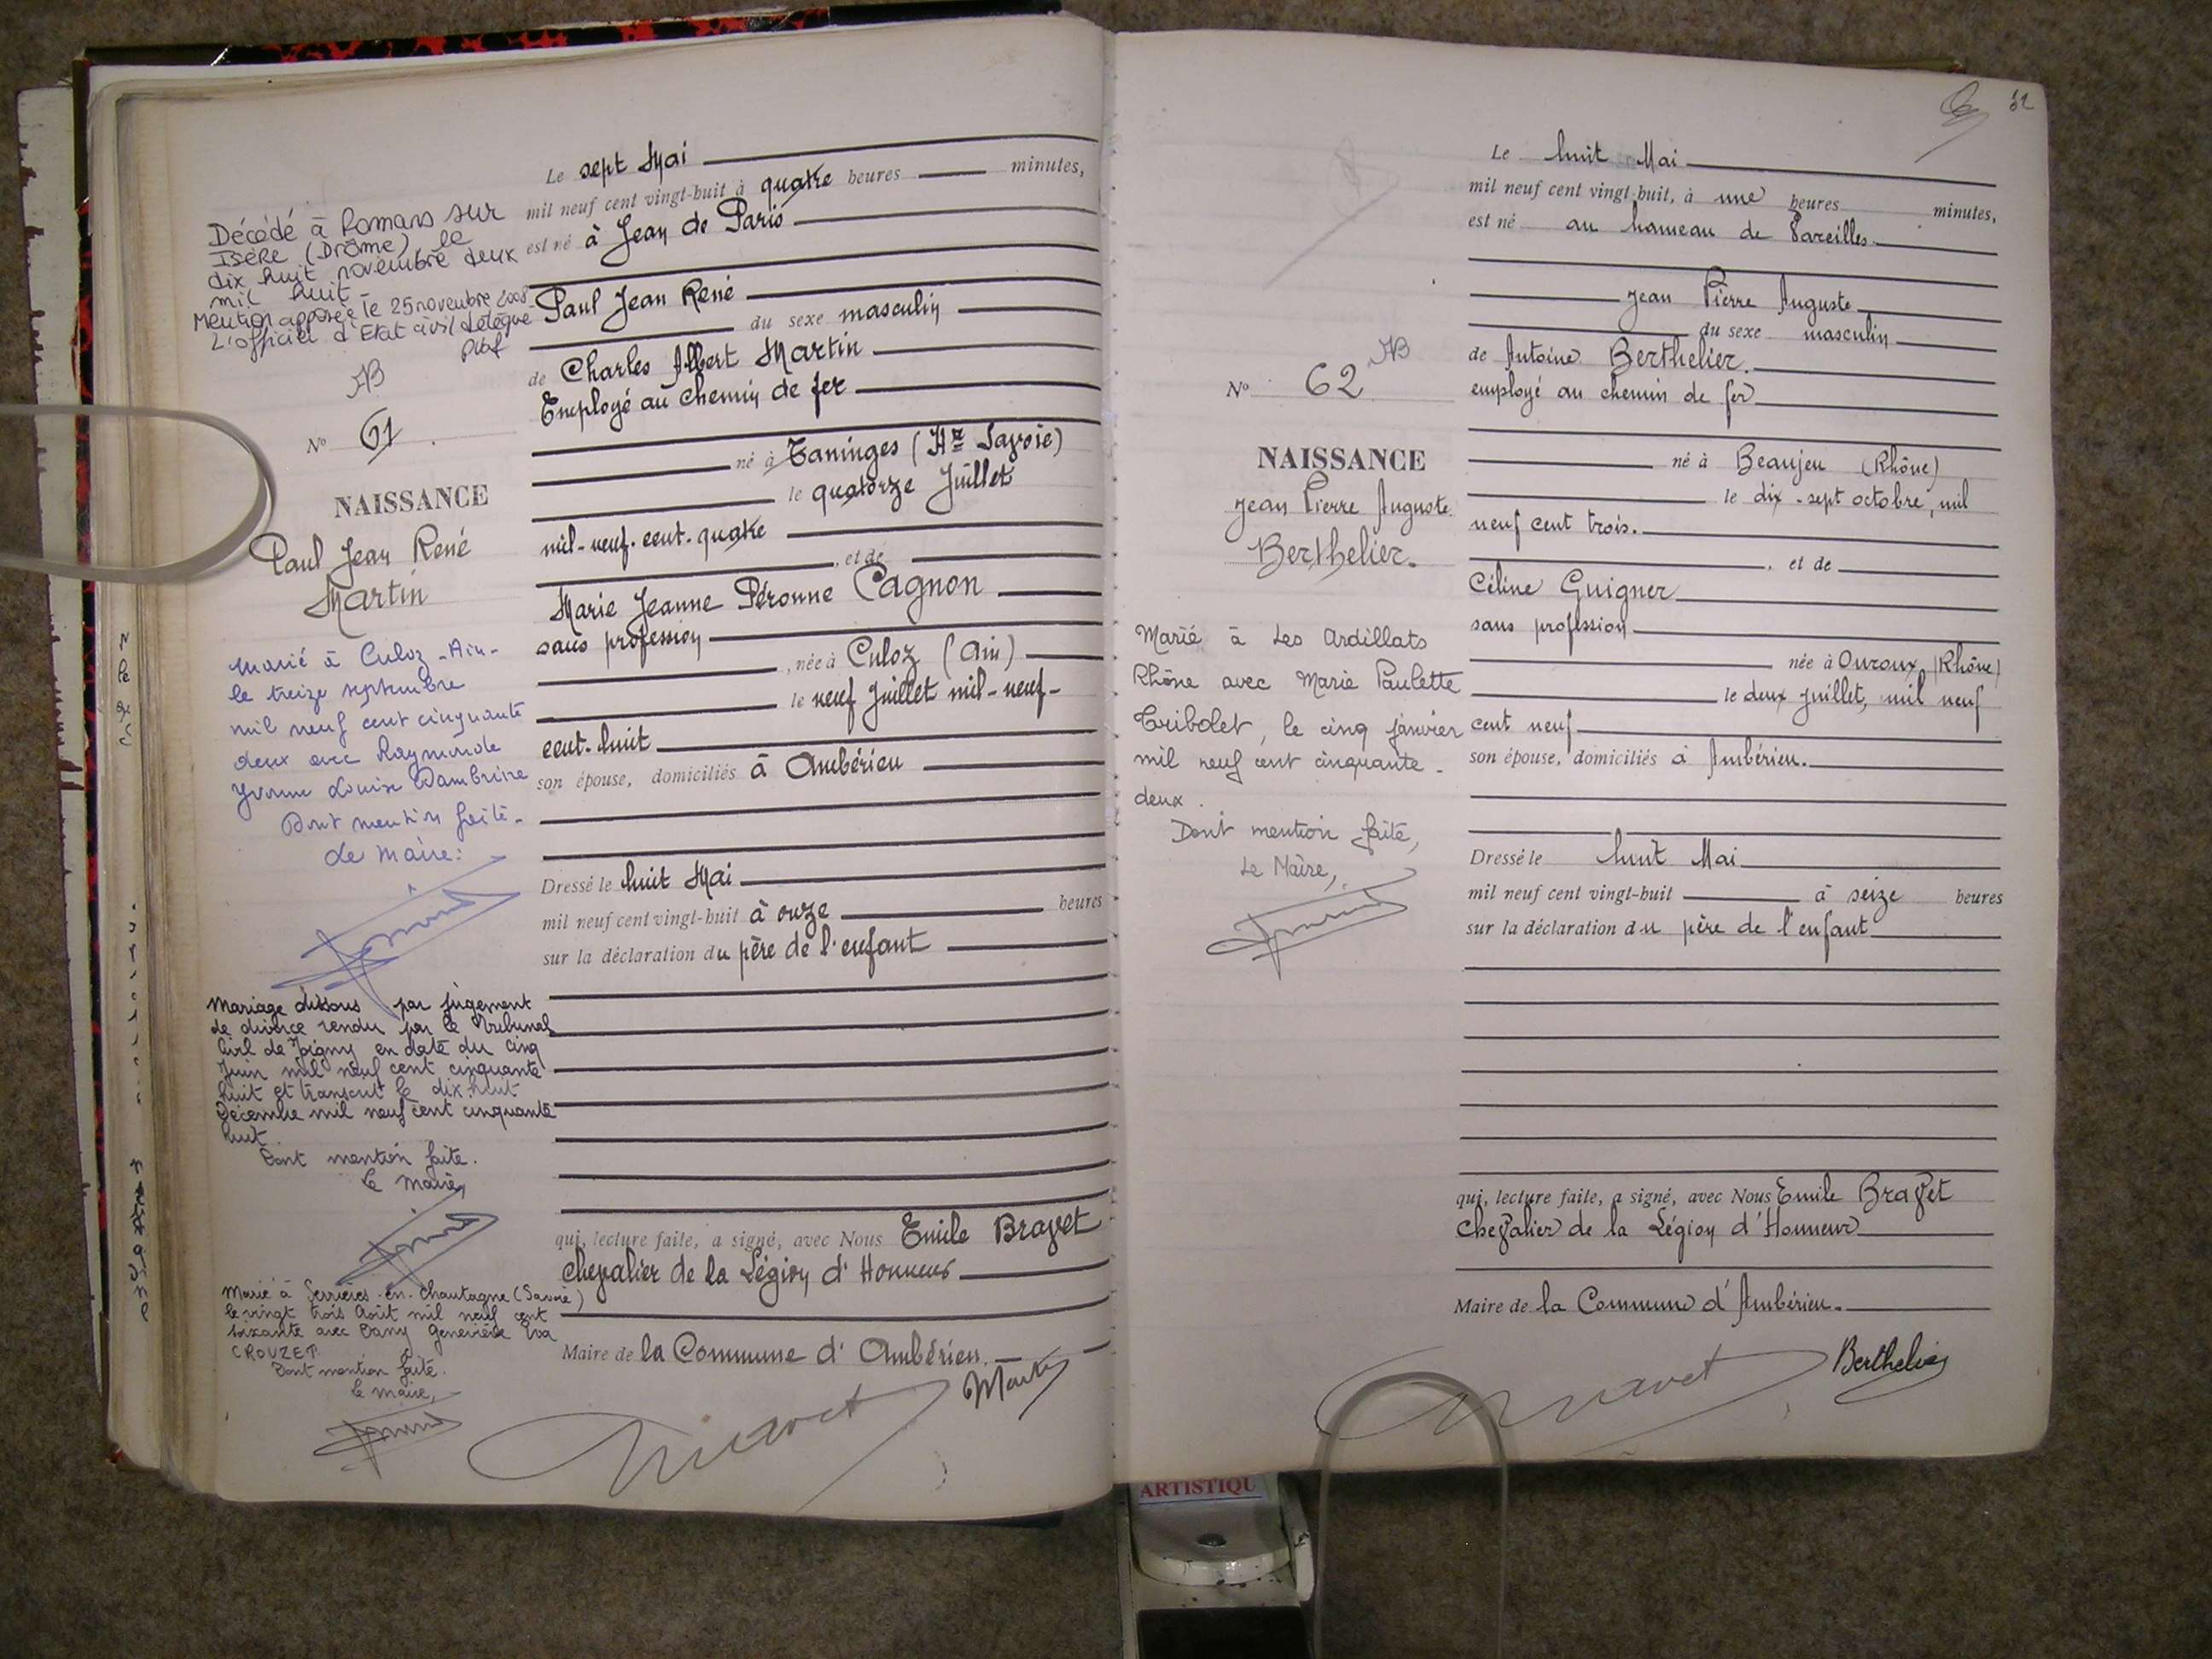 Décédé à Romans sur
Isère (Drôme) le
dix huit novembre deux
mil huit -
Mention apposée le 25 novembre 2008
L'officier d'Etat civil délégué
AB
Nº 61
NAISSANCE
Paul Jean René
Martin
Marié à Culoz - Ain -
le treize septembre
mil neuf cent cinquante
deux avec Raymonde
Yvonne Louise Dambrine
Dont mention faite -
Le Maire :
Mariage dissous par jugement
de divorce rendu par le Tribunal
Civil de Joigny en date du cinq
Juin mil neuf cent cinquante
huit et transcrit le dix huit
Décembre mil neuf cent cinquante
huit.
Dont mention faite.
Le Maire,
Marié à Serrières-en-Chautagne (Savoie)
le vingt trois Août mil neuf cent
soixante avec Dany Geneviève Eva
CROUZET.
Dont mention faite.
Le Maire,
Le sept Mai
mil neuf cent vingt-huit à quatre heures minutes,
est né à Jean de Paris
Paul Jean René
du sexe masculin
de Charles Albert Martin
Employé au chemin de fer
né à Taninges (Hte Savoie)
le quatorze Juillet
mil-neuf-cent-quatre
, et de
Marie Jeanne Péronne Cagnon
sans profession
, née à Culoz (Ain)
le neuf Juillet mil-neuf-
cent-huit
son épouse, domiciliés à Ambérieu
Dressé le huit Mai
mil neuf cent vingt-huit à onze heures
sur la déclaration du père de l'enfant
qui, lecture faite, a signé, avec Nous Emile Bravet
Chevalier de la Légion d'Honneur
Maire de la Commune d'Ambérieu.
Bravet Martin
Le huit Mai
mil neuf cent vingt-huit, à une heures minutes,
est né au hameau de Vareilles.
Jean Pierre Auguste
du sexe masculin
de Antoine Berthelier.
employé au chemin de fer
né à Beaujeu (Rhône)
le dix-sept octobre, mil
neuf cent trois.
, et de
Céline Guigner
sans profession
née à Ouroux (Rhône)
le deux juillet, mil neuf
cent neuf
son épouse, domiciliés à Ambérieu.
Dressé le huit Mai
mil neuf cent vingt-huit à seize heures
sur la déclaration du père de l'enfant
qui, lecture faite, a signé, avec Nous Emile Bravet
Chevalier de la Légion d'Honneur
Maire de la Commune d'Ambérieu.
Bravet Berthelier
AB
Nº 62
NAISSANCE
Jean Pierre Auguste
Berthelier.
Marié à Les Ardillats
Rhône avec Marie Paulette
Tribolet, le cinq janvier
mil neuf cent cinquante -
deux.
Dont mention faite,
Le Maire,
ARTISTIQU